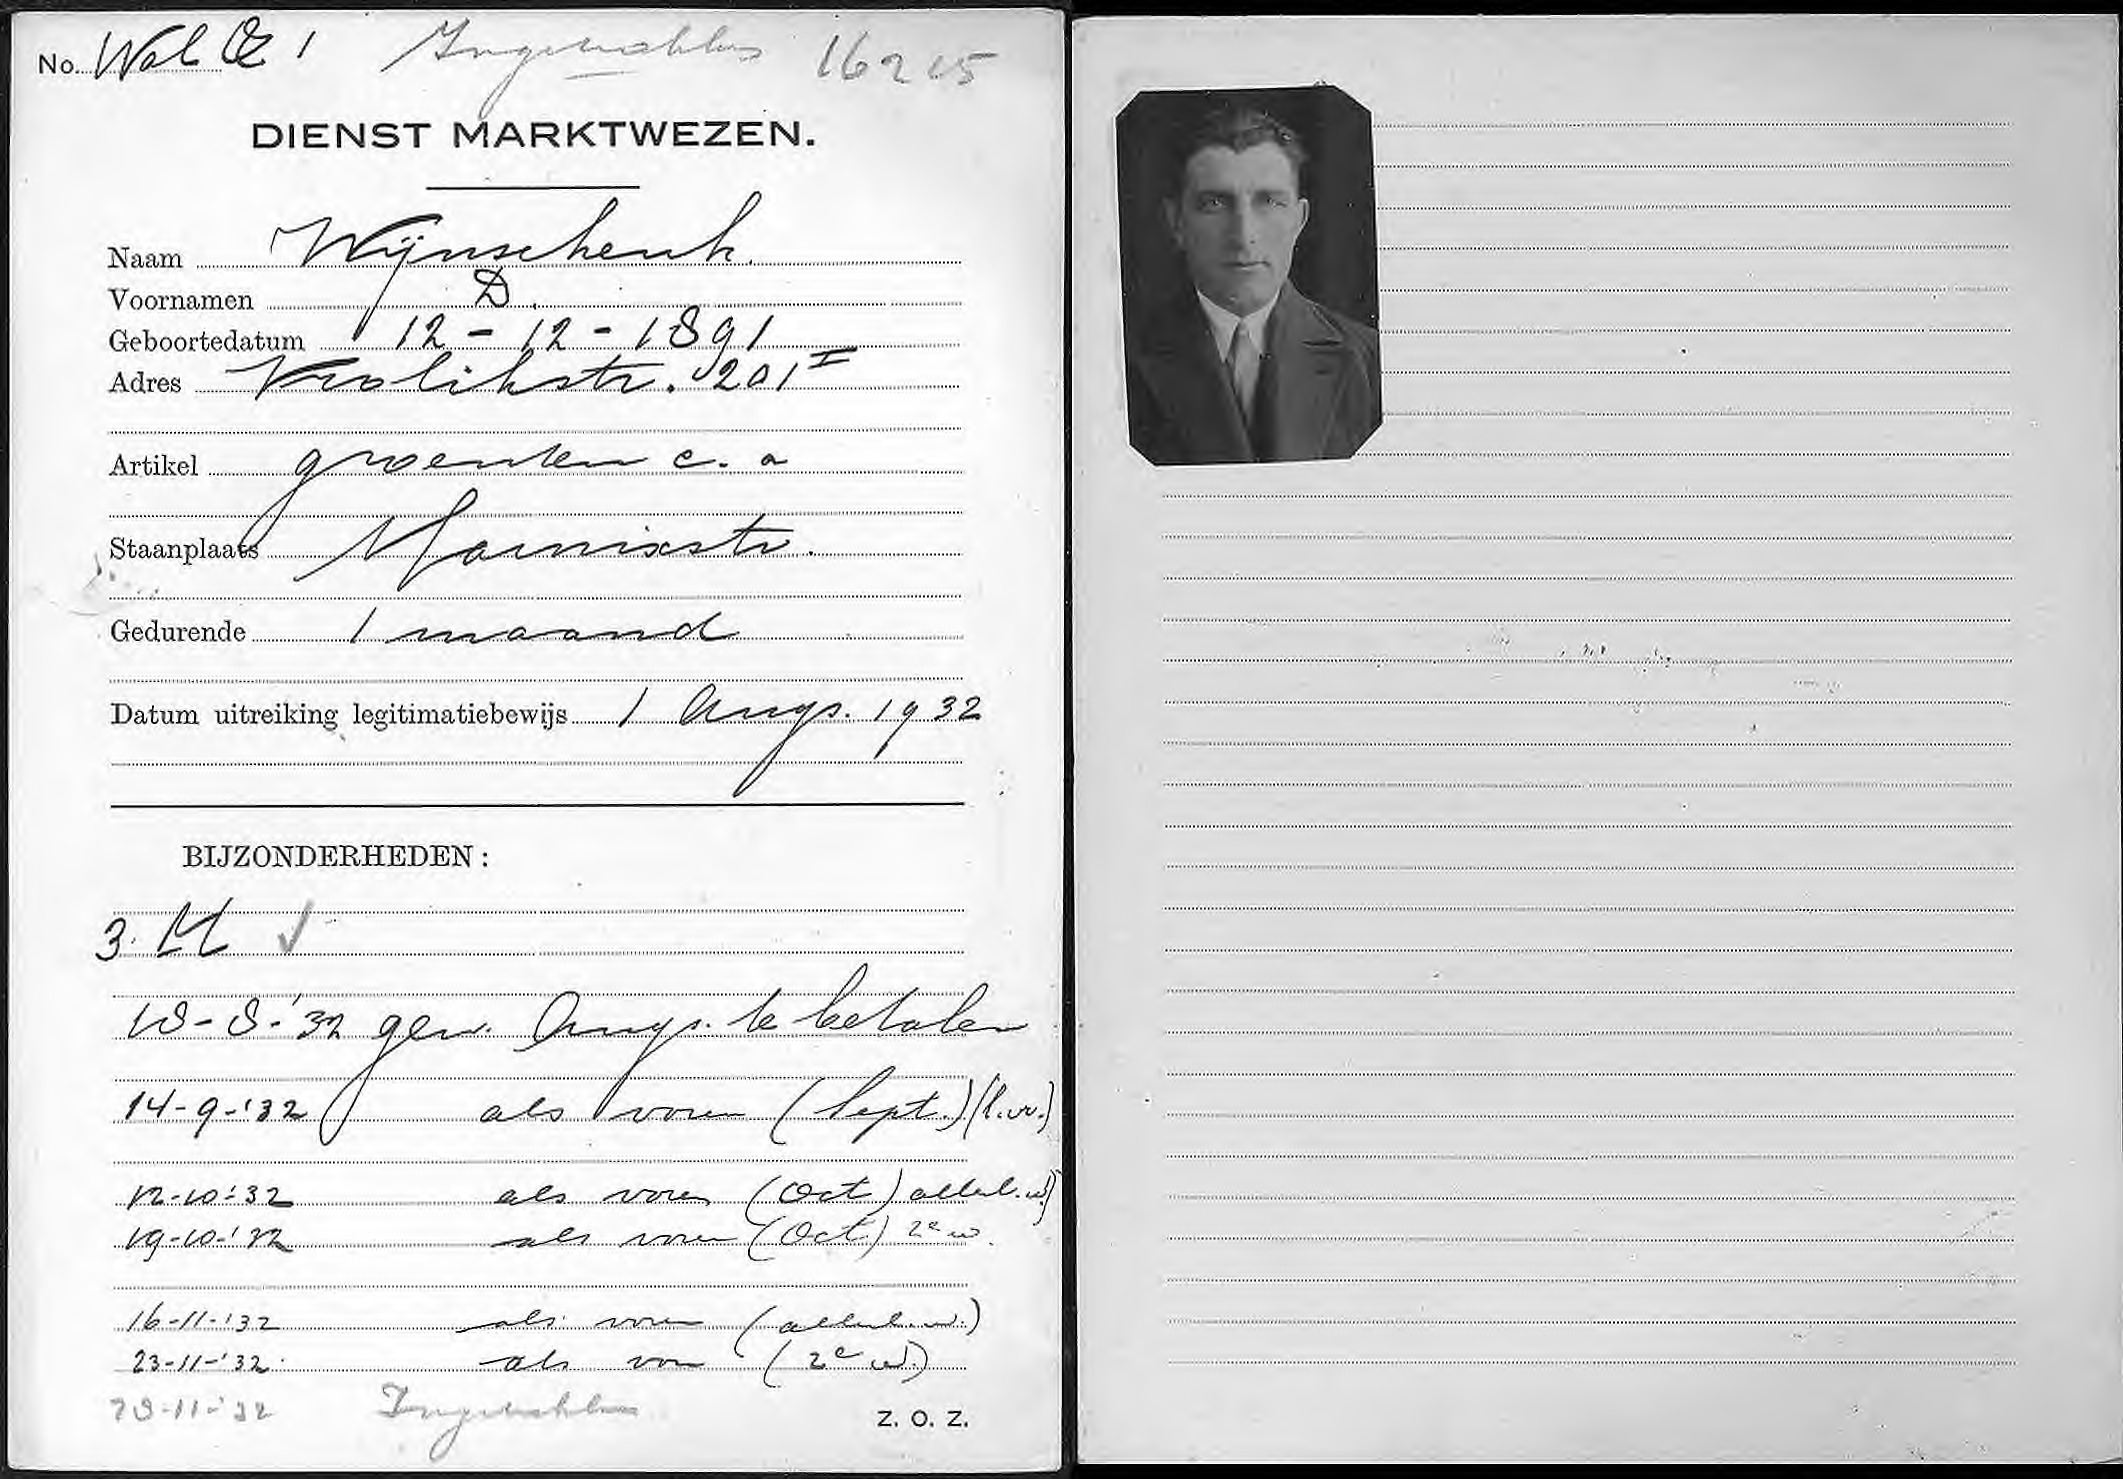 No. Wal Oz 1 Ingetrokken 16215
DIENST MARKTWEZEN.
Naam Wijnschenk.
Voornamen D.
Geboortedatum 12-12-1891
Adres Vrolikstr. 201 I
Artikel groenten e. a
Staanplaats Marnixstr.
Gedurende 1 maand
Datum uitreiking legitimatiebewijs 1 Augs. 1932
BIJZONDERHEDEN:
3. M ✓
18-8-'32 gew. Augs. te betalen
14-9-'32 als voren (Sept.) (l.w.)
12-10-'32 als voren (Oct)
19-10-'32 als voren (Oct.) 2e w.
16-11-'32 als voren
23-11-'32. als voren (2e w.)
29-11-'32 Ingetrokken
Z. O. Z.